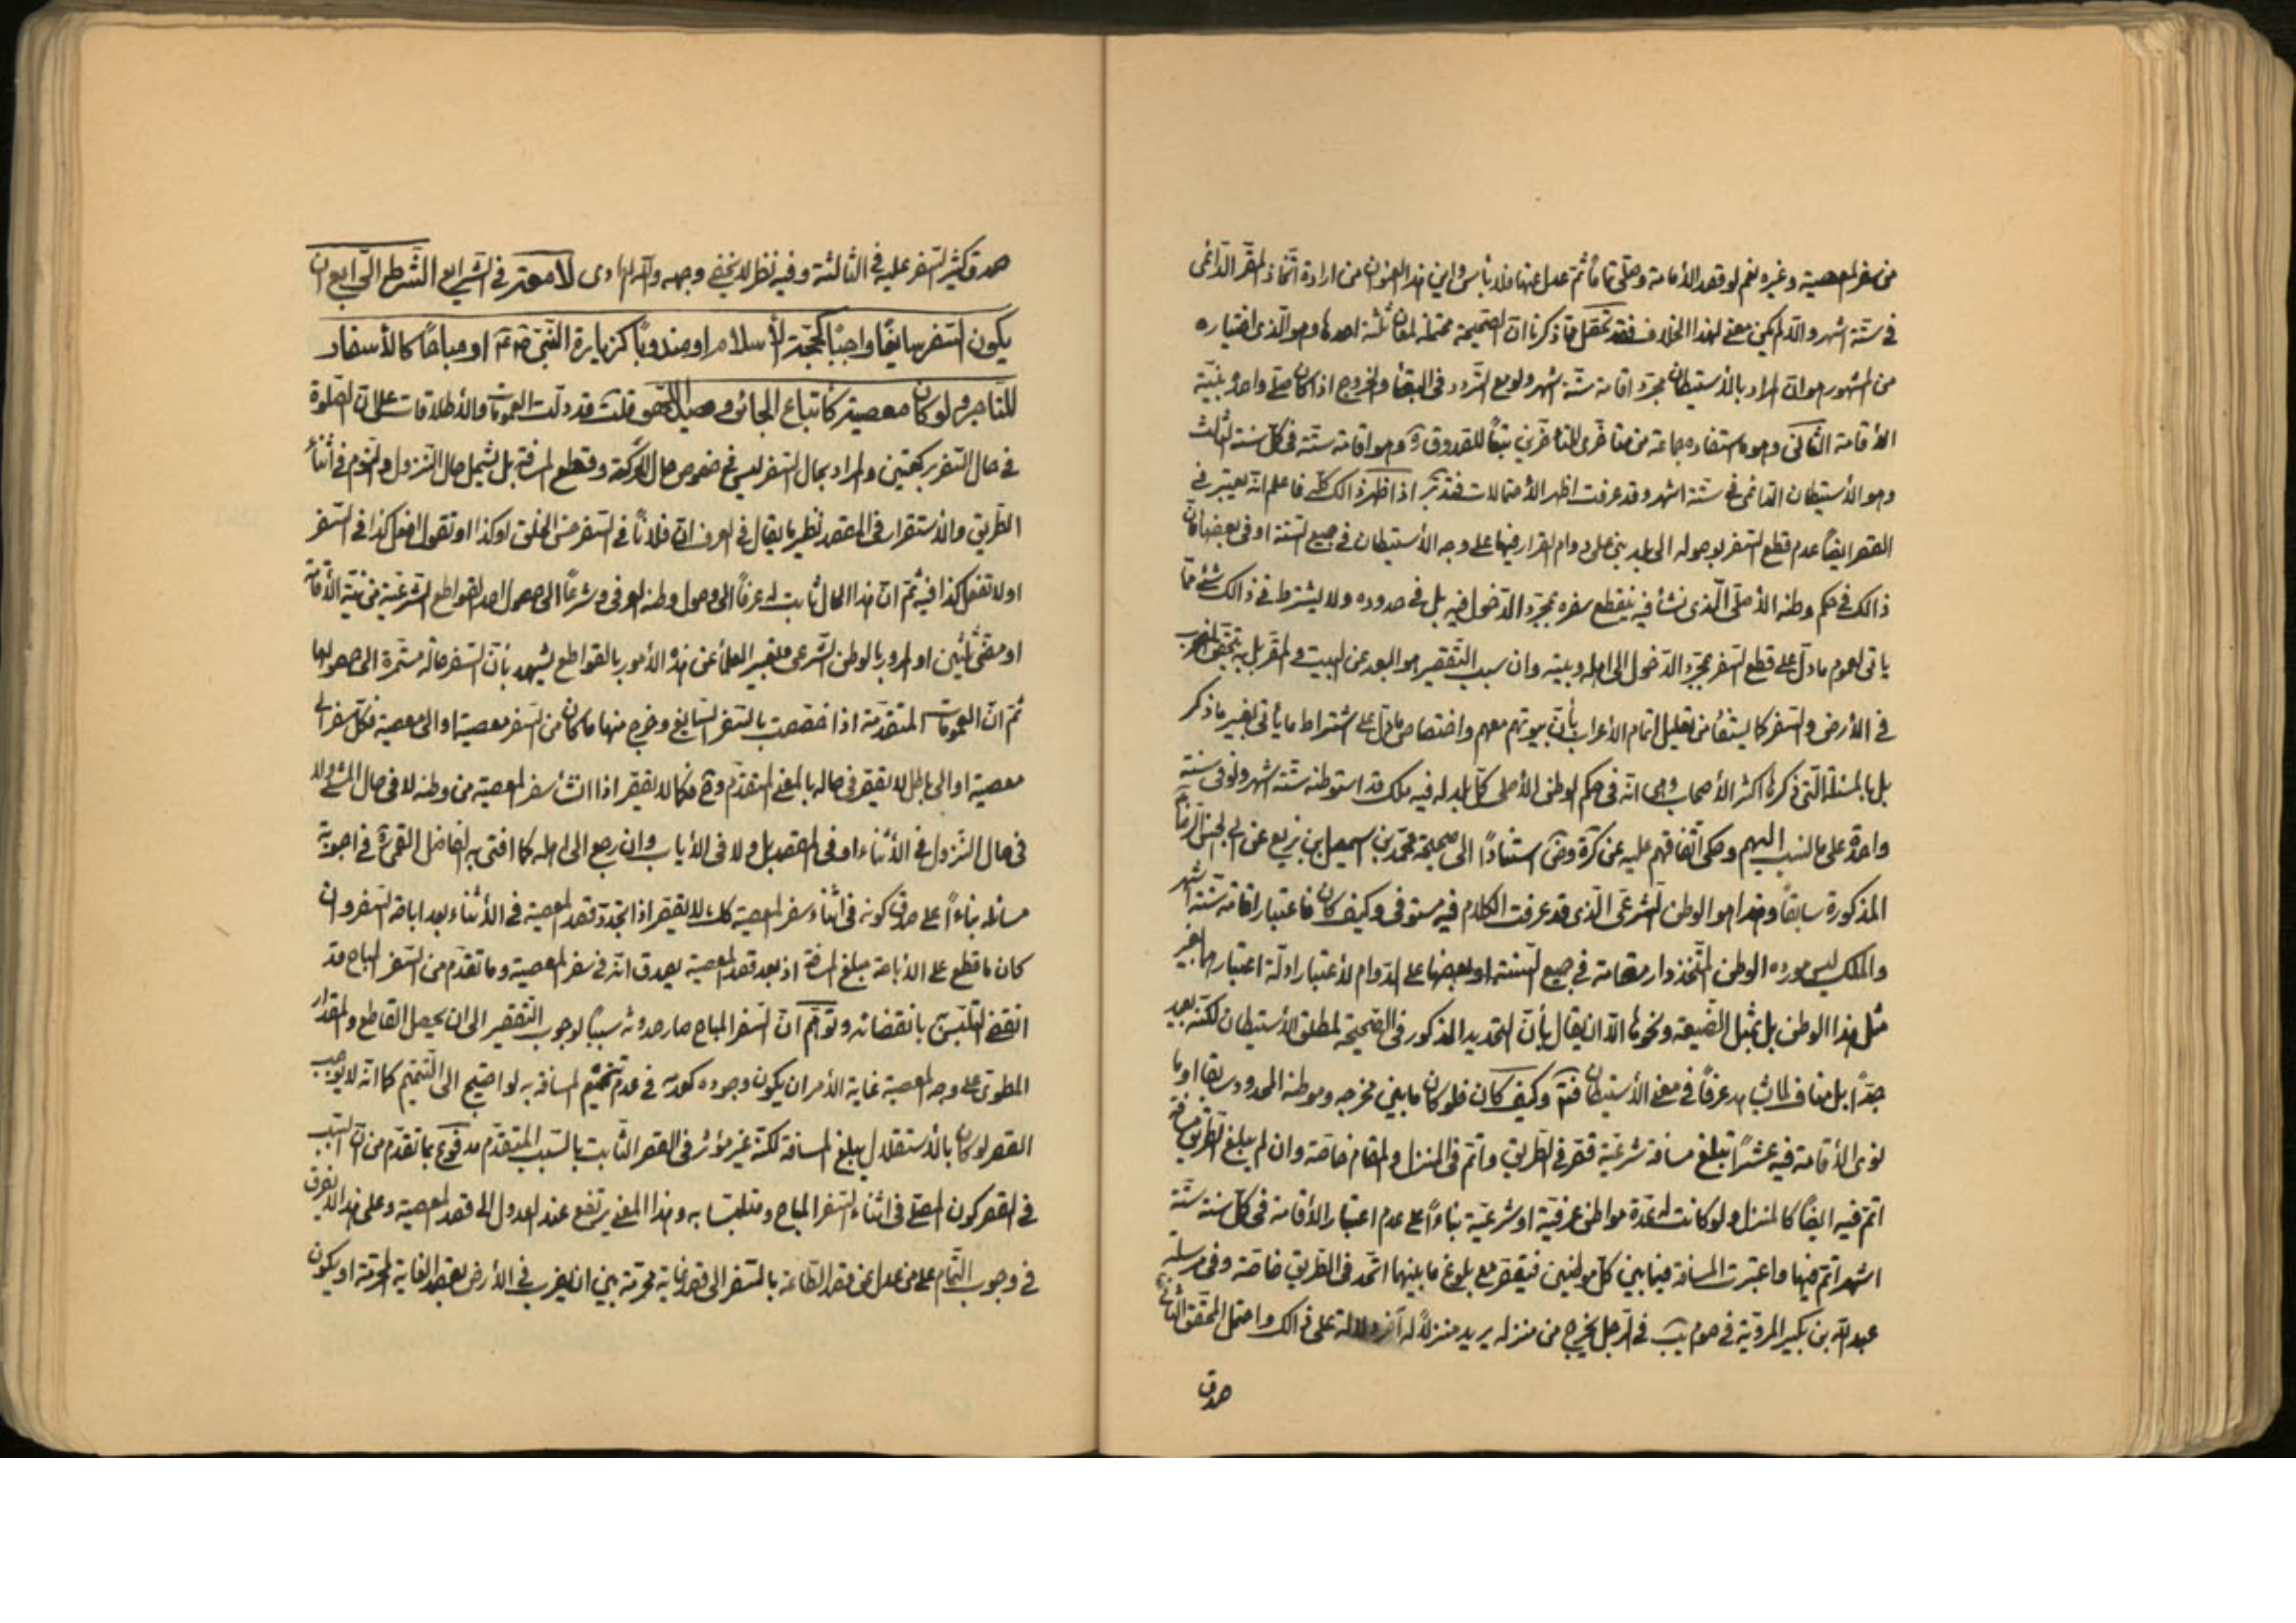 من سفر المعصية وغيره نعم لو قصد الأقامة وصلّى تماماً ثم عدل عنها فلا بأس واين هذا العنوان من ارادة اتّخاذ المقرّ الدّائمى
فى ستّة اشهر والّا لم يكن معنى لهذا الخلاف فقد تحصّل ممّا ذكرنا انّ الصّحيحة محتملة لمعان ثلثة احدها وهو الّذى اختياره
من المشهور هو انّ المراد بالأستيطان مجرّد اقامة ستّة اشهر ولو مع التّردد فى البقاء والخروج اذا كان صلّى واحدة بنيّة
الأقامة الثّانى وهو ما استفاده جماعة من متأخّرى المتأخّرين تبعاً للصدوق ره وهو اقامة ستّة فى كلّ سنة الثّالث
وهو الأستيطان الدّائمى فى ستّة اشهر وقد عرفت اظهر الأحتمالات فتدبّر اذا ظهر ذالك كلّه فاعلم انّه يعتبر فى
القصر ايضاً عدم قطع السّفر بوصوله الى بلد بنى على دوام القرار فيها على وجه الأستيطان فى جميع السّنة او فى بعضها فانّ
ذالك فى حكم وطنه الأصلىّ الّذى نشأ فيه ينقطع سفره بمجرّد الدّخول فيه بل فى حدوده ولا يشترط فى ذالك شئ ممّا
يأتى لعموم ما دلّ على قطع السّفر بمجرّد الدّخول الى اهله وبيته وان سبب التّقصير هو البعد عن البيت والمقرّ بل به يتحقّق الضرب
فى الأرض والسّفر كما يستفاد من تعليل اتمام الأعراب بأنّ بيوتهم معهم واختصاص ما دلّ على اشتراط ما يأتى بغير ما ذكر
بل بالمسئلة الّتى ذكرها اكثر الأصحاب وهى انّه فى حكم الوطن الأصلى كلّ بلد له فيه ملك قد استوطنه ستّة اشهر ولو فى سنة
واحدة على ما نسب اليهم وحكى اتّفاقهم عليه عن كرة وض استناداً الى صحيحة محمّد بن اسمعيل بن بزيع عن ابى الحسن الرضا
المذكورة سابقاً وهذا هو الوطن الشّرعىّ الّذى قد عرفت الكلام فيه مستوفى وكيف كان فاعتبار اقامة ستّة اشهر
والملك ليس مورده الوطن المتّخذ دار مقامة فى جميع السّنة او بعضها على الدّوام لأعتبار ادلّة اعتبارهما بغير
مثل هذا الوطن بل بمثل الضّيعة ونحوها الّا ان يقال بأنّ التّحديد المذكور فى الصّحيحة لمطلق الأستيطان لكنّه بعيد
جدّاً بل مناف لما يشاهد عرفاً فى معنى الأستيطان فتمّ وكيف كان فلو كان ما بين مخرجه وموطنه المحدود سابقا او ما
نوى الأقامة فيه عشراً تبلغ مسافة شرعيّة قصّر فى الطّريق واتمّ فى المنزل والمقام خاصّة وان لم يبلغ الطّريق مسافة
اتمّ فيه ايضاً كالمنزل ولو كانت له عدّة مواطن عرفيّة او شرعيّة بناءاً على عدم اعتبار الأقامة فى كلّ سنة ستّة
اشهر اتمّ فيها واعتبرت المسافة فيما بين كلّ موطنين فيقصّر مع بلوغ ما بينهما الحّد فى الطّريق خاصّة وفى مرسلة
عبد اللّه بن بكير المرويّة فى صوم يب فى الرّجل يخرج من منزله يريد منزلاً له آخر دلالة على ذالك واحتمل المحقّق الثّانى
صدق
صدق كثير السّفر عليه فى الثّالثة وفيه نظر لا يخفى وجهه واللّه الهادى لا معتبر فى الشرايع الشّرط الرّابع ان
يكون السّفر سايغًا واجبًا كحجّة الأسلام او مندوبًا كزيارة النّبىّ او مباحًا كالأسفار
للتّاجر ولو كان معصية كاتباع الجائر وصيد اللّهو قلت قد دلّت العمومات والأطلاقات على انّ الصّلوة
فى حال السّفر ركعتين والمراد بحال السّفر ليس فى خصوص حال الحركة وقطع المسافة بل يشمل حال النّزول والنّوم فى اثناء
الطّريق والأستقرار فى المقصد نظير ما يقال فى العرف انّ فلاناً فى السّفر حسن الخلق او كذا او تقول افعل كذا فى السّفر
او لا تفعل كذا فيه ثمّ انّ هذا الحال ثابت له عرفاً الى وصول وطنه العرفى وشرعاً الى حصول احد القواطع الشّرعيّة من نيّة الأقامة
او مضىّ ثلثين او المرور بالوطن الشّرعى فتعبير العلماء عن هذه الأمور بالقواطع يشهد بأنّ السّفر حالة مستمرّة الى حصولها
ثمّ انّ العمومات المتقدّمة اذا خصّصت بالسّفر السّايغ وخرج منها ما كان من السّفر معصية او الى معصية فكلّ سفر الى
معصية او الى باطل لا يقصّر فى حاله بالمعنى المتقدّم وح فكما لا يقصّر اذا انشأ سفر المعصية من وطنه لا فى حال المشى ولا
فى حال النّزول فى الأثناء او فى المقصد بل ولا فى الأياب وان رجع الى اهله كما افتى به الفاضل القمى ره فى اجوبة
مسائله بناءاً على صدق كونه فى اثناء سفر المعصية كك لا يقصّر اذا تجدّد قصد المعصية فى الأثناء بعد اباحة السّفر وان
كان ما قطع على الأباحة مبلغ المسافة اذ بعد قصد المعصية يصدق انّه فى سفر المعصية وما تقدّم من السّفر المباح قد
انقضى التلبّس به بانقضائه وتوهّم انّ السّفر المباح صار حدوثه سببًا لوجوب التّقصير الى ان يحصل القاطع والمقدار
المطوى على وجه المعصية غاية الأمر ان يكون وجوده كعدمه فى عدم تتميم المسافة به لو احتيج الى التّتميم كما انّه لا يوجب
القصر لو كان بالأستقلال يبلغ المسافة لكنّه غير مؤثر فى القصر الثّابت بالسّبب المتقدّم مدفوع بما تقدّم من انّ السّبب
فى القصر كون المصلّى فى اثناء السّفر المباح ومتلبّسا به وهذا المعنى يرتفع عند العدول الى قصد المعصية وعلى هذا لا يفرق
فى وجوب التّمام على من عدل عن قصد الطّاعة بالسّفر الى قصد غاية محرّمة بين ان يضرب فى الأرض بقصد الغاية المحرّمة او يكون